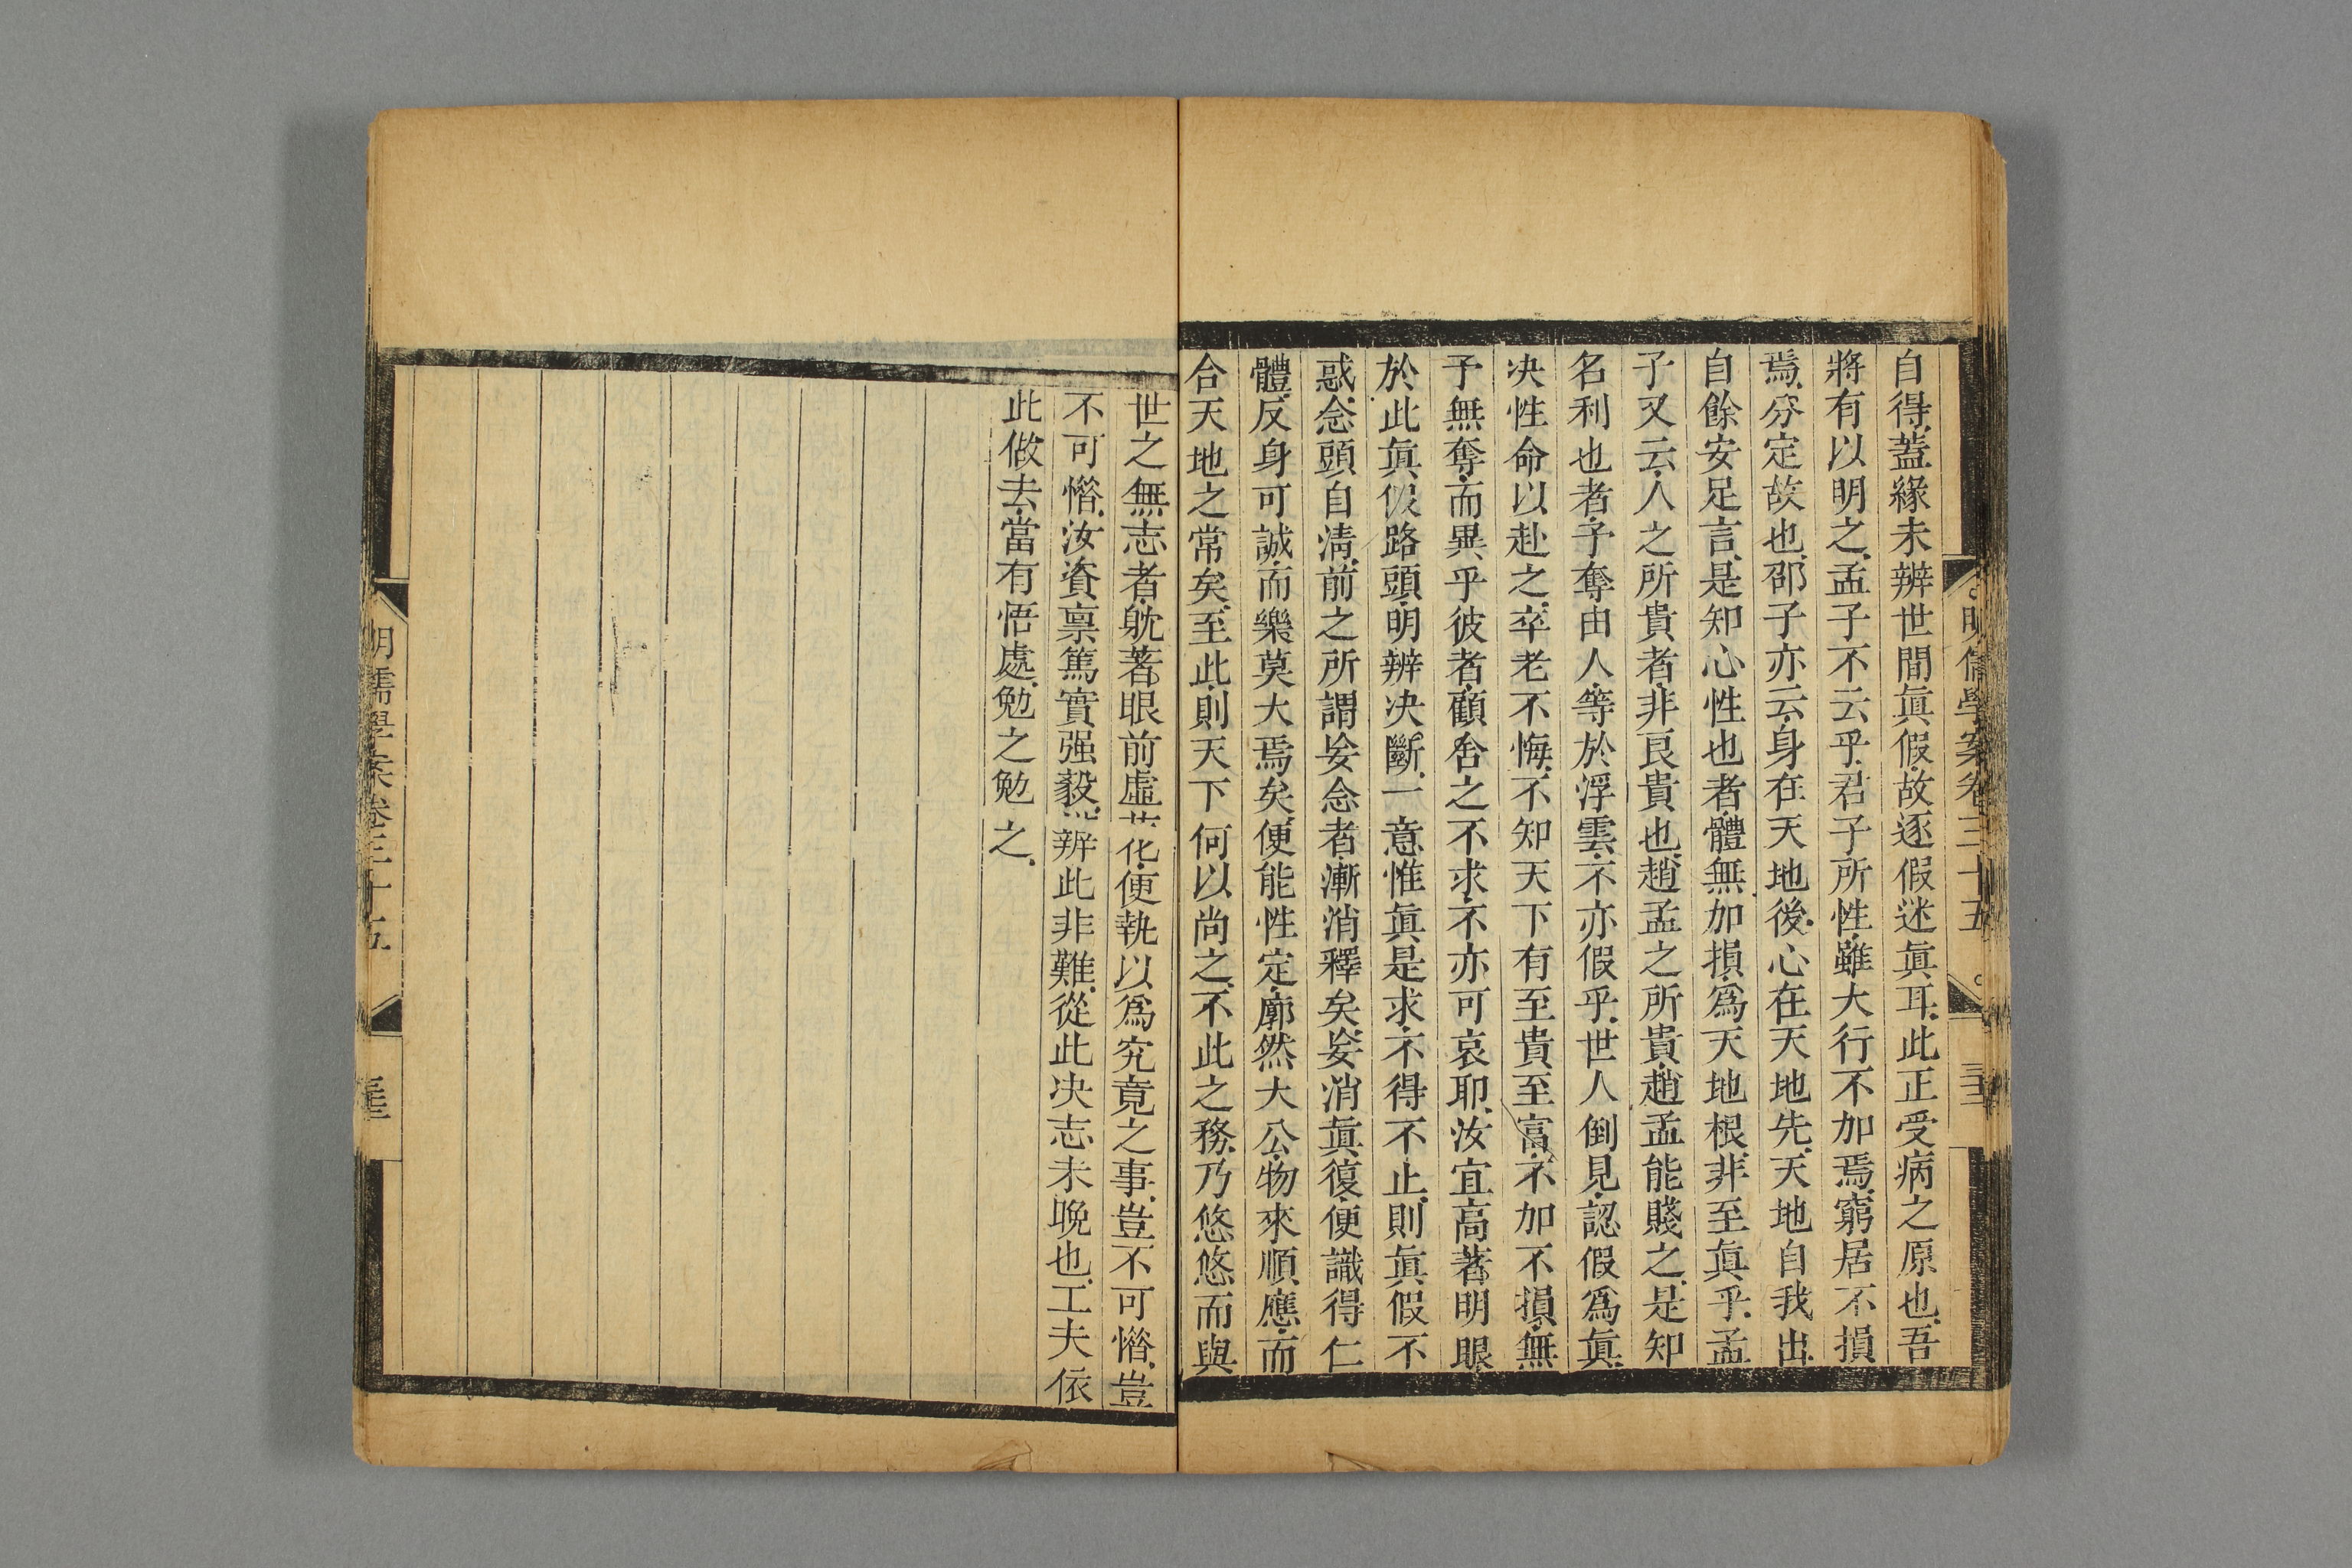 自得蓋緣未辨世間眞假故逐假迷眞耳此正受病之原也吾
將有以明之孟子不云乎君子所性雖大行不加焉窮居不損
焉分定故也邵子亦云身在天地後心在天地先天地自我出
自餘安足言是知心性也者體無加損爲天地根非至眞乎孟
子又云人之所貴者非良貴也趙孟之所貴趙孟能賤之是知
名利也者予奪由人等於浮雲不亦假乎世人倒見認假爲眞
决性命以赴之卒老不悔不知天下有至貴至富不加不損無
予無奪而異乎彼者顧舍之不求不亦可哀耶汝宜高著明眼
於此眞假路頭明辨决斷一意惟眞是求不得不止則眞假不
惑念頭自淸前之所謂妄念者漸消釋矣妄消眞復便識得仁
體反身可誠而樂莫大焉矣便能性定廓然大公物來順應而
合天地之常矣至此則天下何以尚之不此之務乃悠悠而與
明儒學案卷三十五
世之無志者躭著眼前虛花便執以爲究竟之事豈不可惜豈
不可惜汝資禀篤實强毅辨此非難從此决志未晚也工夫依
此做去當有悟處勉之勉之
明儒學案卷三十五